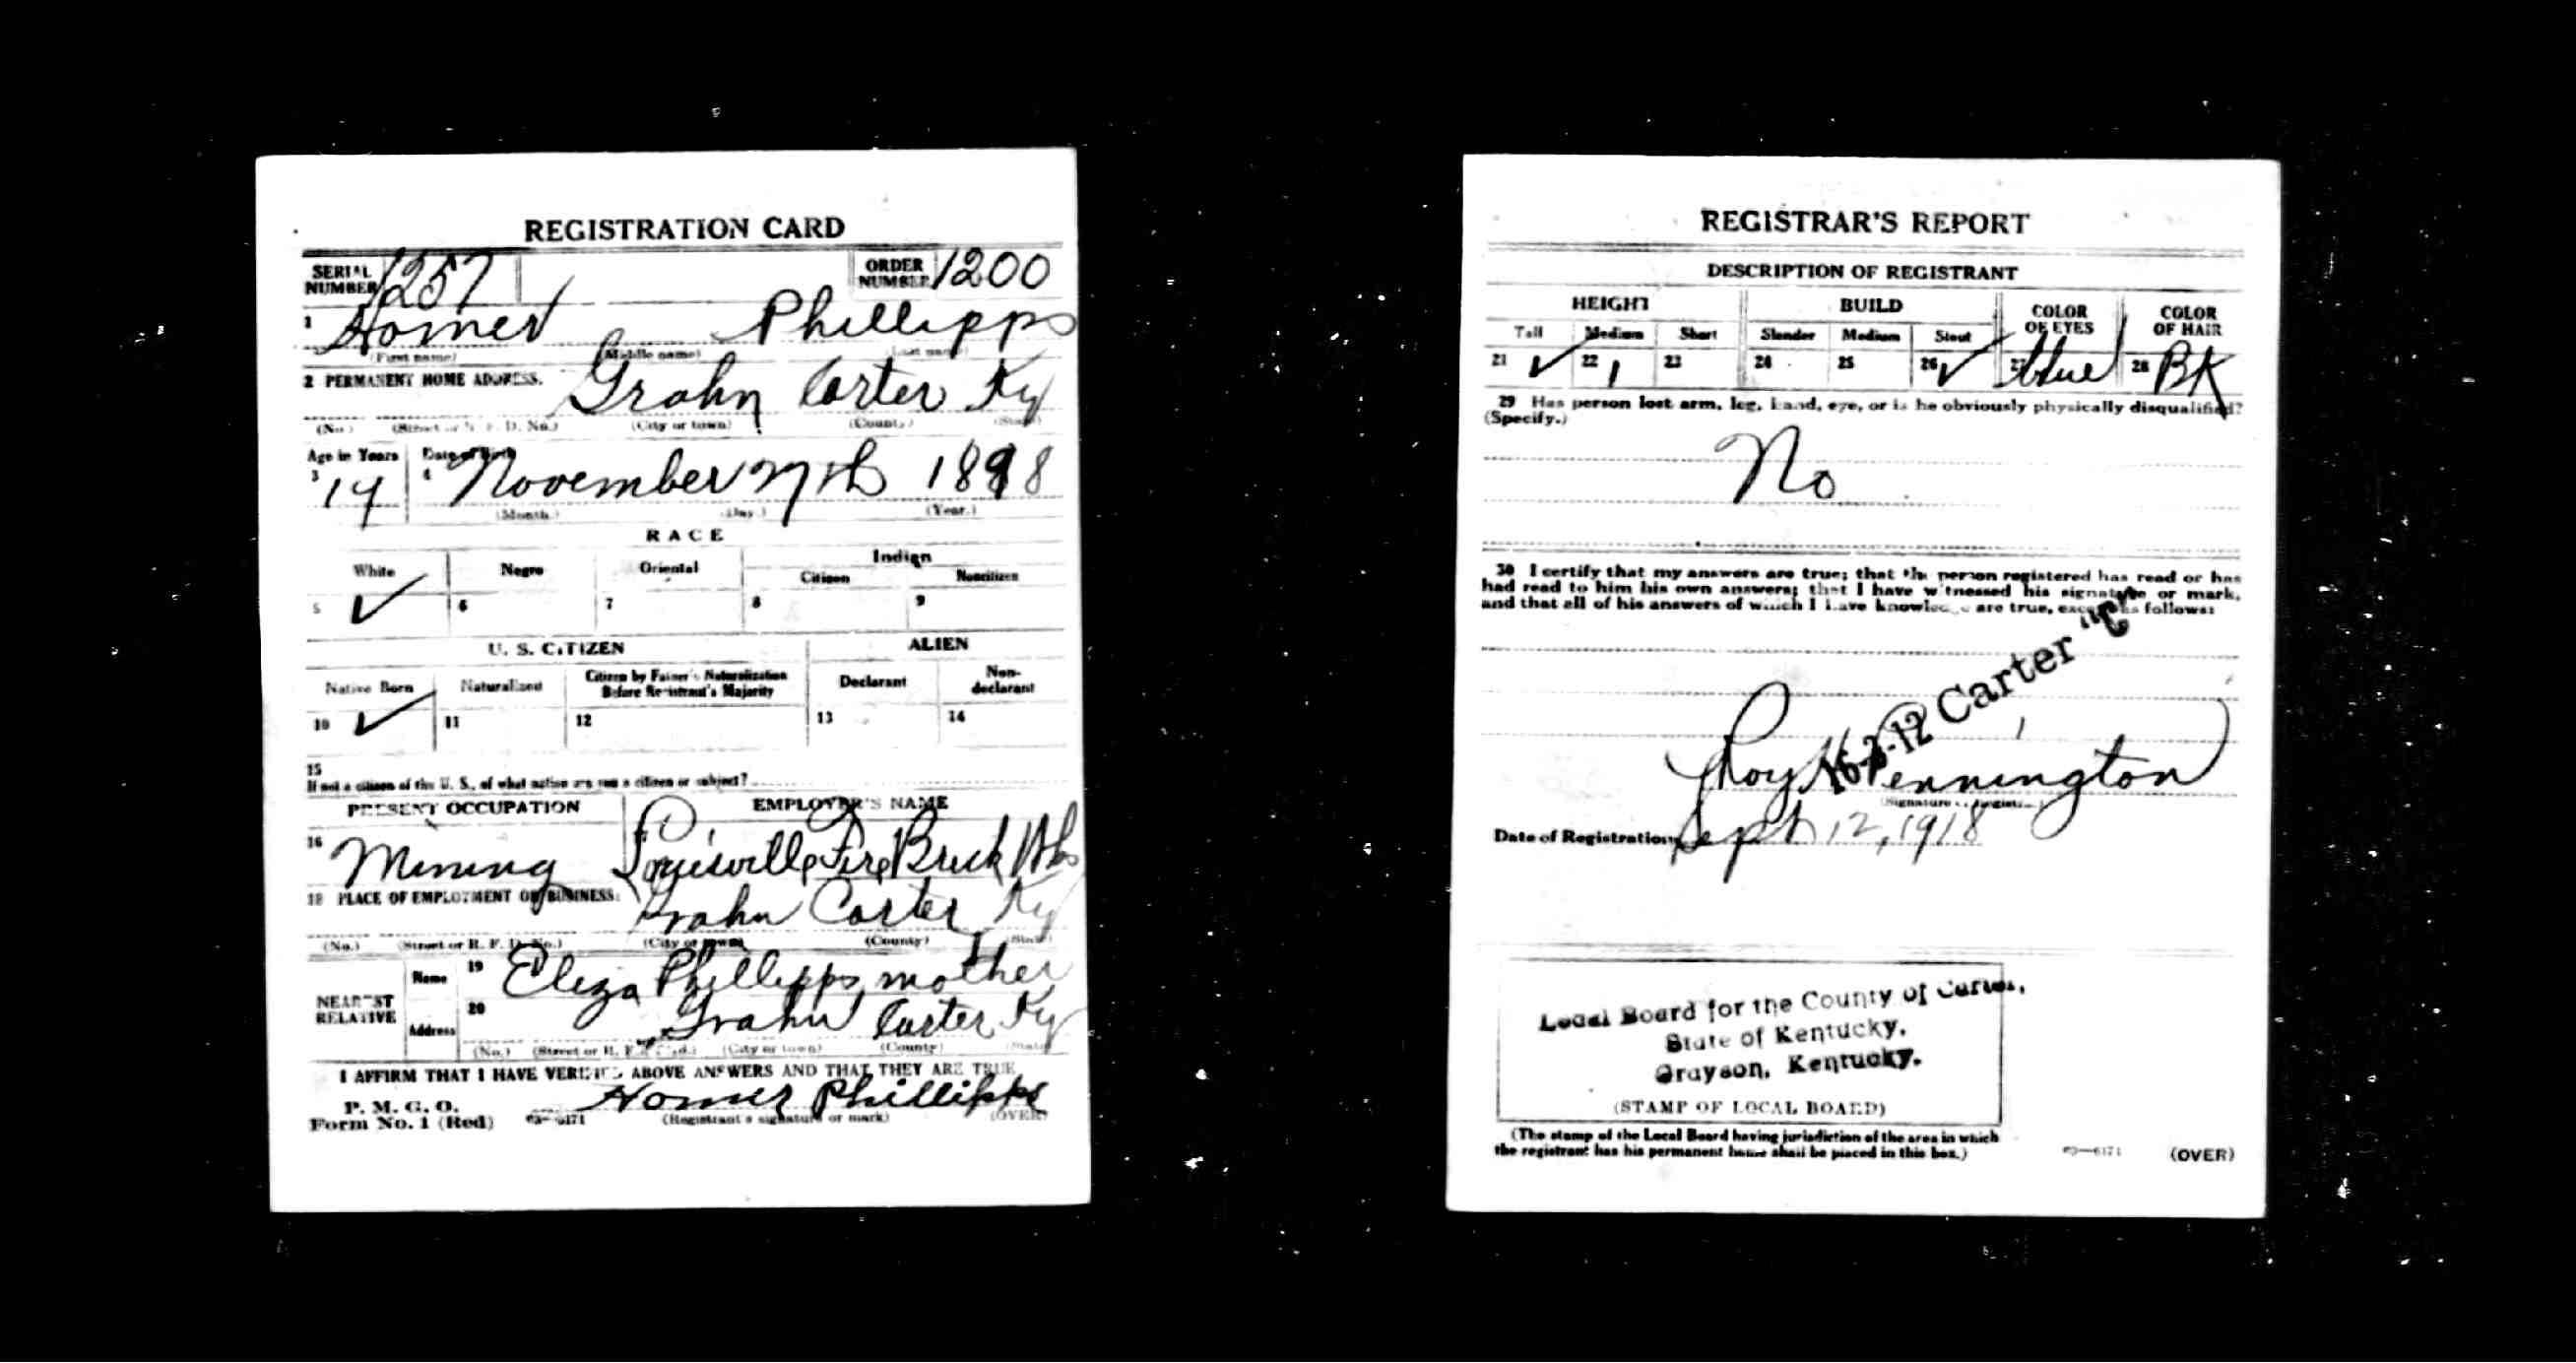 REGISTRATION CARD
SERIAL NUMBER 1257 ORDER NUMBER 1200
1 Homer Phillipps
(First name) (Middle name) (Last name)
2 PERMANENT HOME ADDRESS. Grahn Carter Ky
(No.) (Street or R. F. D. No.) (City or town) (County) (State)
Age in Years Date of Birth
3 19 4 November 27th 1898
(Month.) (Day.) (Year.)
RACE
White Negro Oriental Indian
Citizen Noncitizen
5 ✓ 6 7 8 9
U. S. CITIZEN ALIEN
Native Born Naturalized Citizen by Father's Naturalization Before Registrant's Majority Declarant Non-declarant
10 ✓ 11 12 13 14
15
If not a citizen of the U. S., of what nation are you a citizen or subject?
PRESENT OCCUPATION EMPLOYER'S NAME
16 Mining Louisville Fire Brick Wks
18 PLACE OF EMPLOYMENT OR BUSINESS: Grahn Carter Ky
(No.) (Street or R. F. D. No.) (City or town) (County) (State)
NEAREST RELATIVE Name 19 Eliza Phillipps mother
Address 20 Grahn Carter Ky
(No.) (Street or R. F. D. No.) (City or town) (County) (State)
I AFFIRM THAT I HAVE VERIFIED ABOVE ANSWERS AND THAT THEY ARE TRUE
P. M. G. O.
Form No. 1 (Red) 03—6171 Homer Phillipps
(Registrant's signature or mark) (OVER)
REGISTRAR'S REPORT
DESCRIPTION OF REGISTRANT
HEIGHT BUILD COLOR OF EYES COLOR OF HAIR
Tall Medium Short Slender Medium Stout
21 ✓ 22 23 24 25 26 ✓ 27 blue 28 BK
29 Has person lost arm, leg, hand, eye, or is he obviously physically disqualified?
(Specify.)
No
30 I certify that my answers are true; that the person registered has read or has
had read to him his own answers; that I have witnessed his signature or mark,
and that all of his answers of which I have knowledge are true, except as follows:
16-3-12 Carter "C"
Roy Pennington
(Signature of Registrar)
Date of Registration Sept 12, 1918
Local Board for the County of Carter,
State of Kentucky.
Grayson, Kentucky.
(STAMP OF LOCAL BOARD)
(The stamp of the Local Board having jurisdiction of the area in which
the registrant has his permanent home shall be placed in this box.)
03—6171 (OVER)